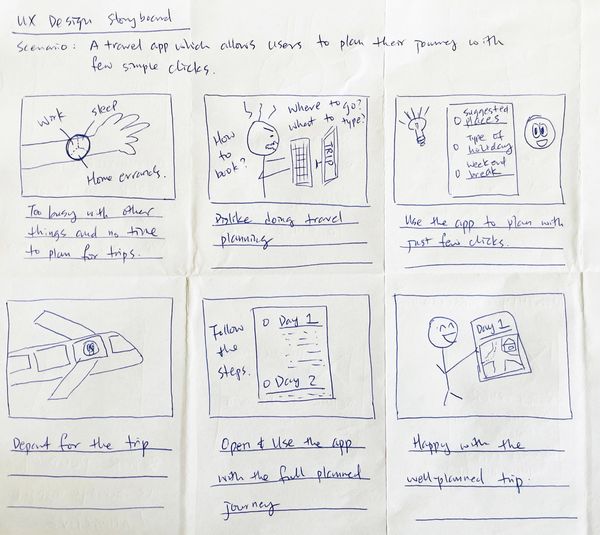 UX Design Storyboard
Scenario: A travel app which allows users to plan their journey with
few simple clicks.
work
sleep
Home errands.
Too busy with other
things and no time
to plan for trips.
How
to
book?
Where to go?
what to type?
TRIP
Dislike doing travel
planning
Suggested
places
Type of
holiday
weekend
break
Use the app to plan with
just few clicks.
Depart for the trip
Follow
the
steps.
Day 1
Day 2
Open & Use the app
with the full planned
journey
Day 1
Happy with the
well-planned trip.